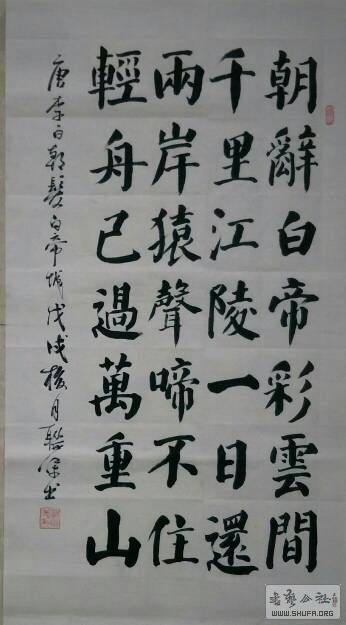 朝辭白帝彩雲間
千里江陵一日還
兩岸猿聲啼不住
輕舟已過萬重山
唐李白朝發白帝城戊戌榴月聯保书
书艺公社
WWW.SHUFA.ORG